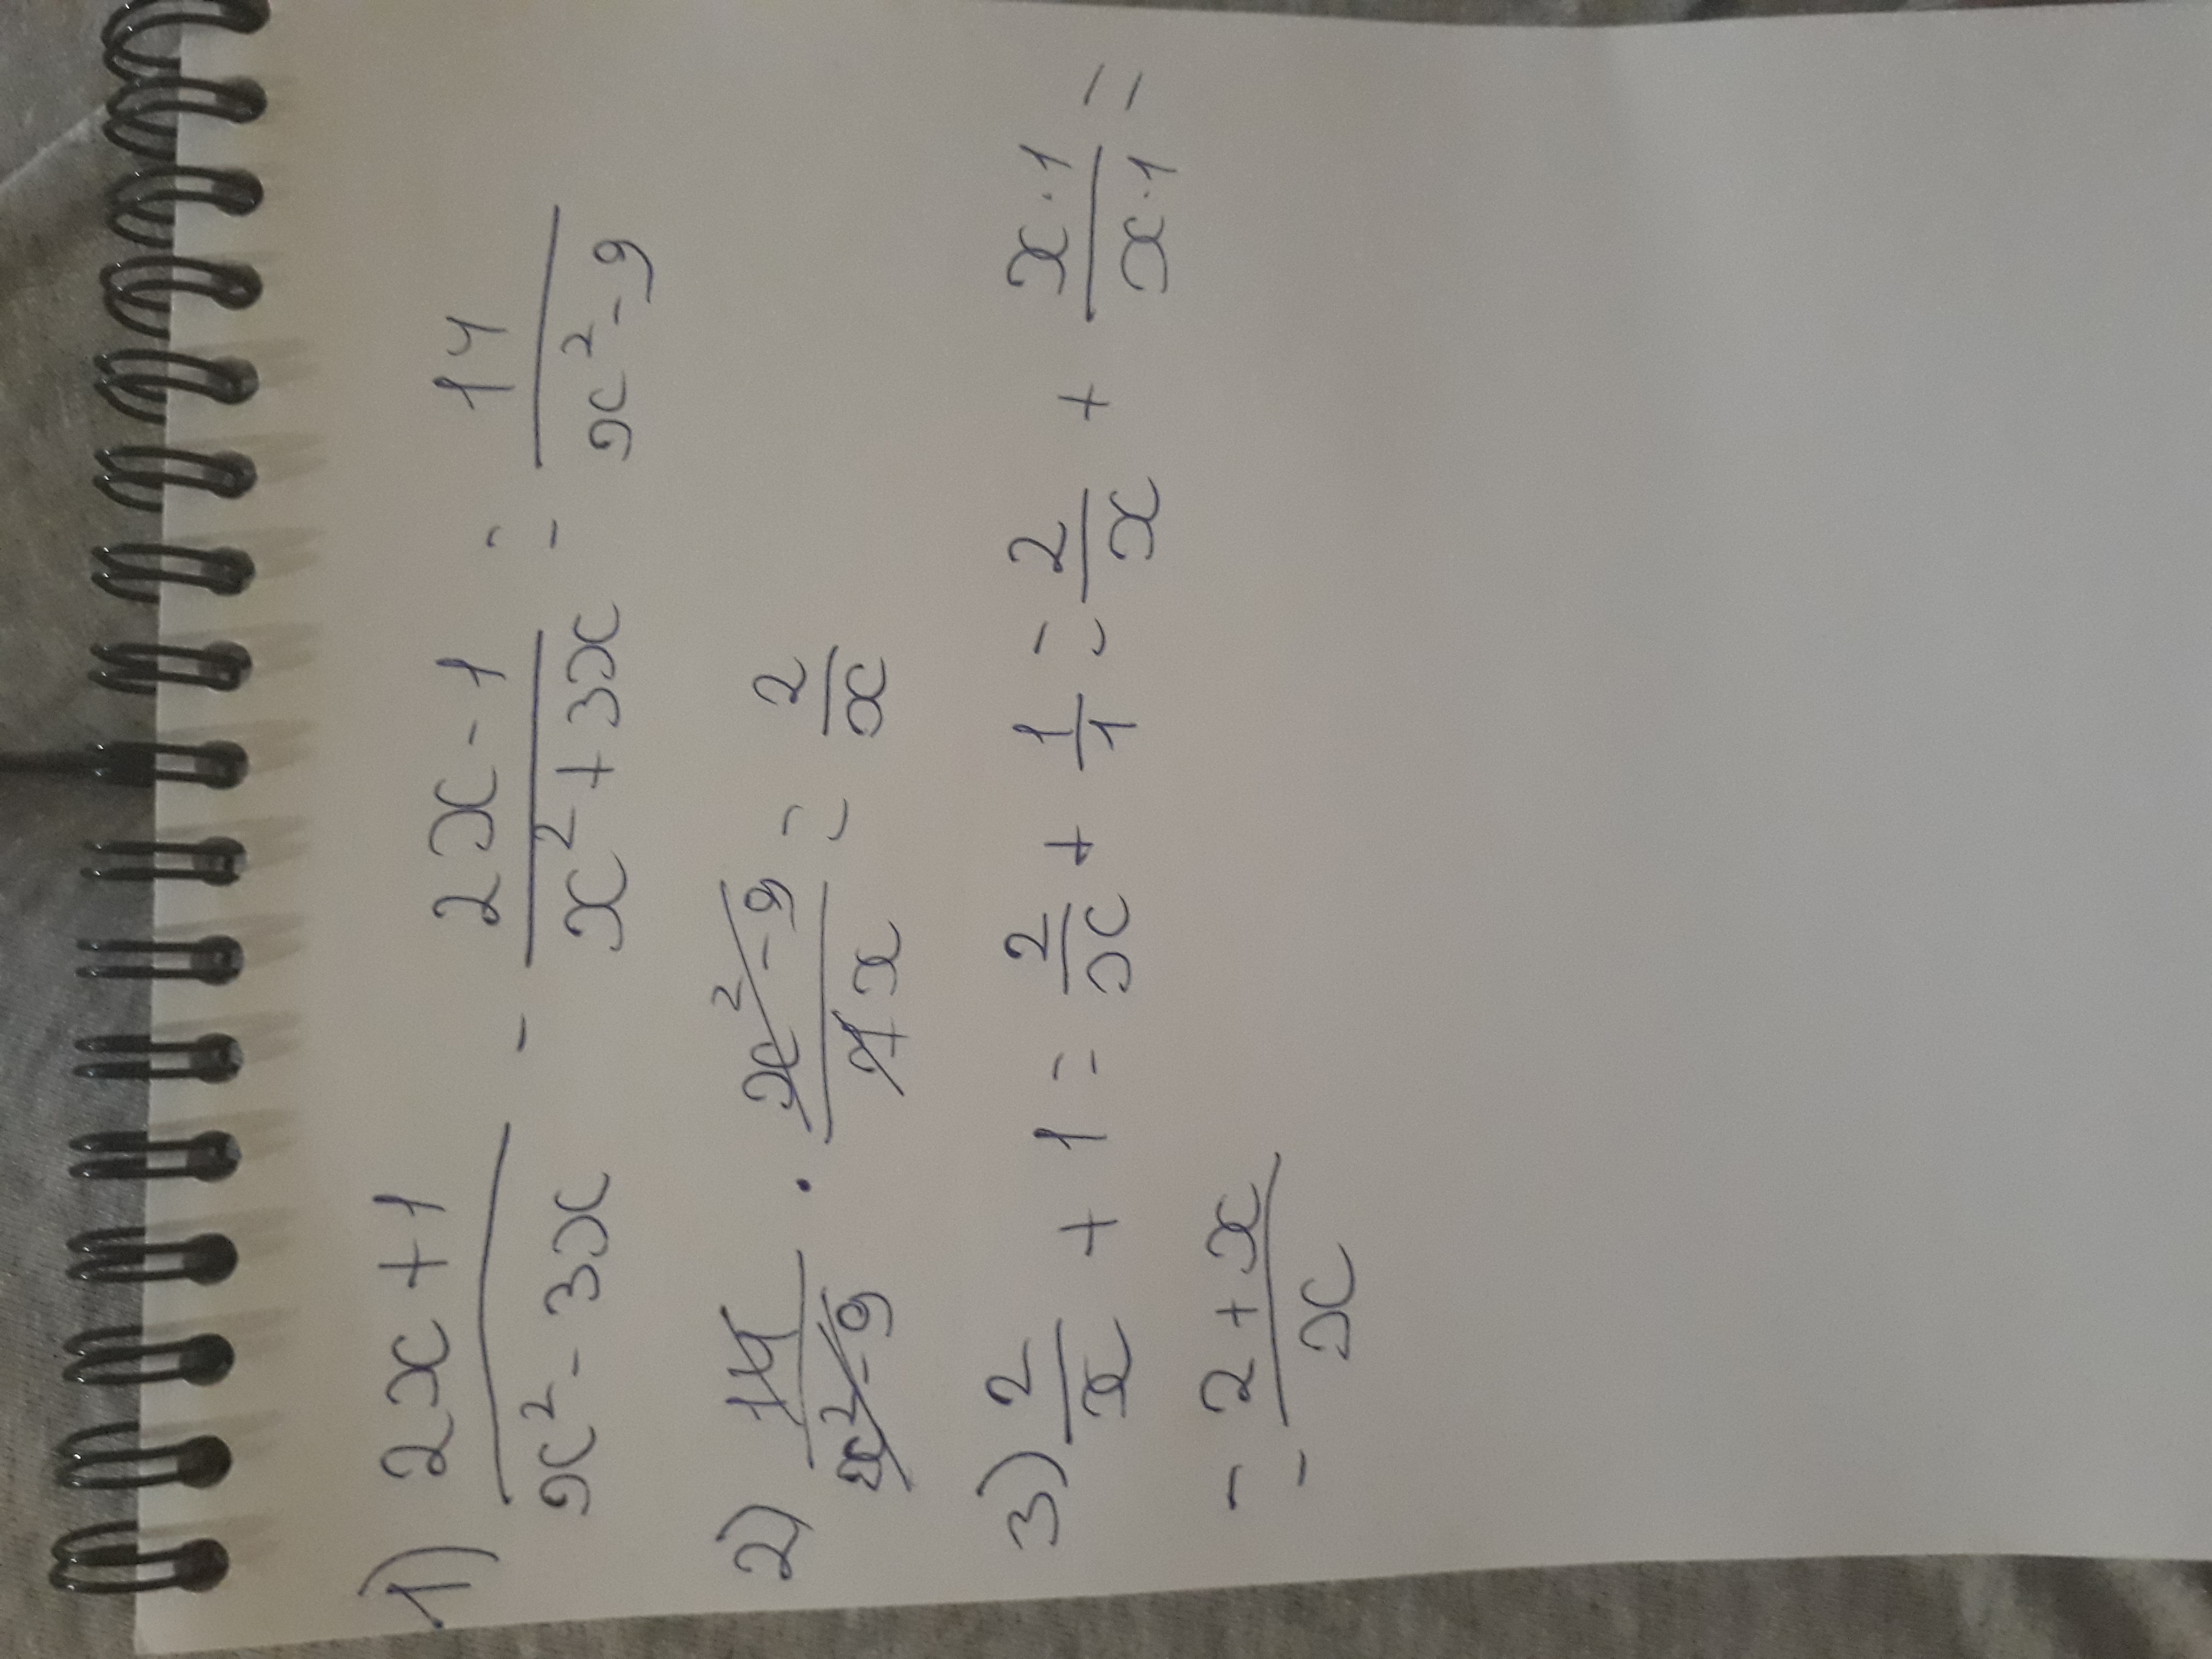 1) (2x + 1)/(x² - 3x) - (2x - 1)/(x² + 3x) = 14/(x² - 9)
2) 14/(x² - 9) · (x² - 9)/(7x) = 2/x
3) 2/x + 1 = 2/x + 1/1 = 2/x + (x · 1)/(x · 1) =
= (2 + x)/x